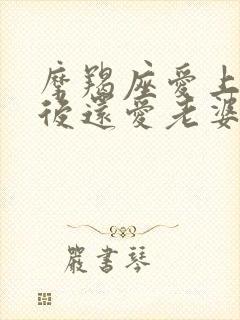 摩羯座愛上
後還愛老婆
嚴書琴